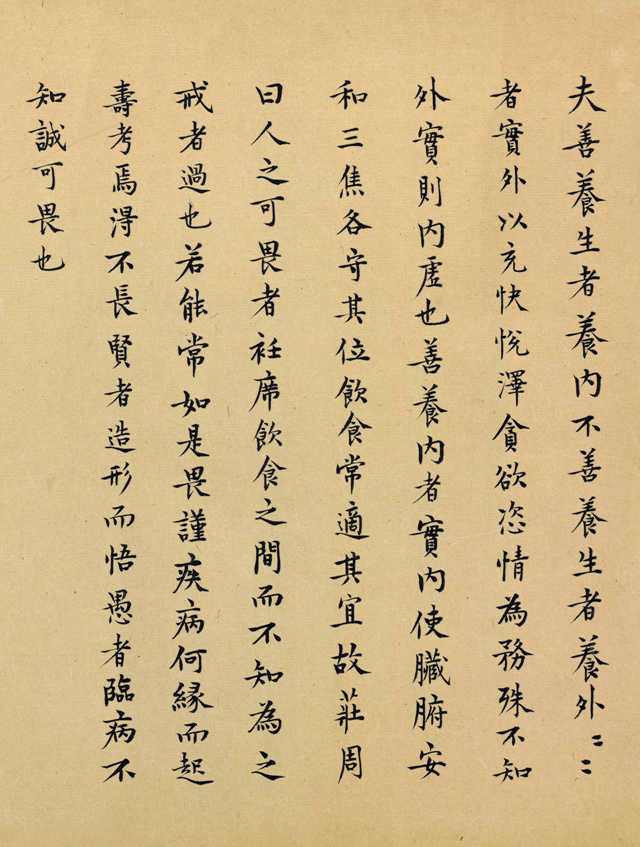 夫善養生者養內不善養生者養外〻〻
者實外以充快悅澤貪欲恣情為務殊不知
外實則內虛也善養內者實內使臟腑安
和三焦各守其位飲食常適其宜故莊周
曰人之可畏者衽席飲食之間而不知為之
戒者過也若能常如是畏謹疾病何緣而起
壽考焉得不長賢者造形而悟愚者臨病不
知誠可畏也